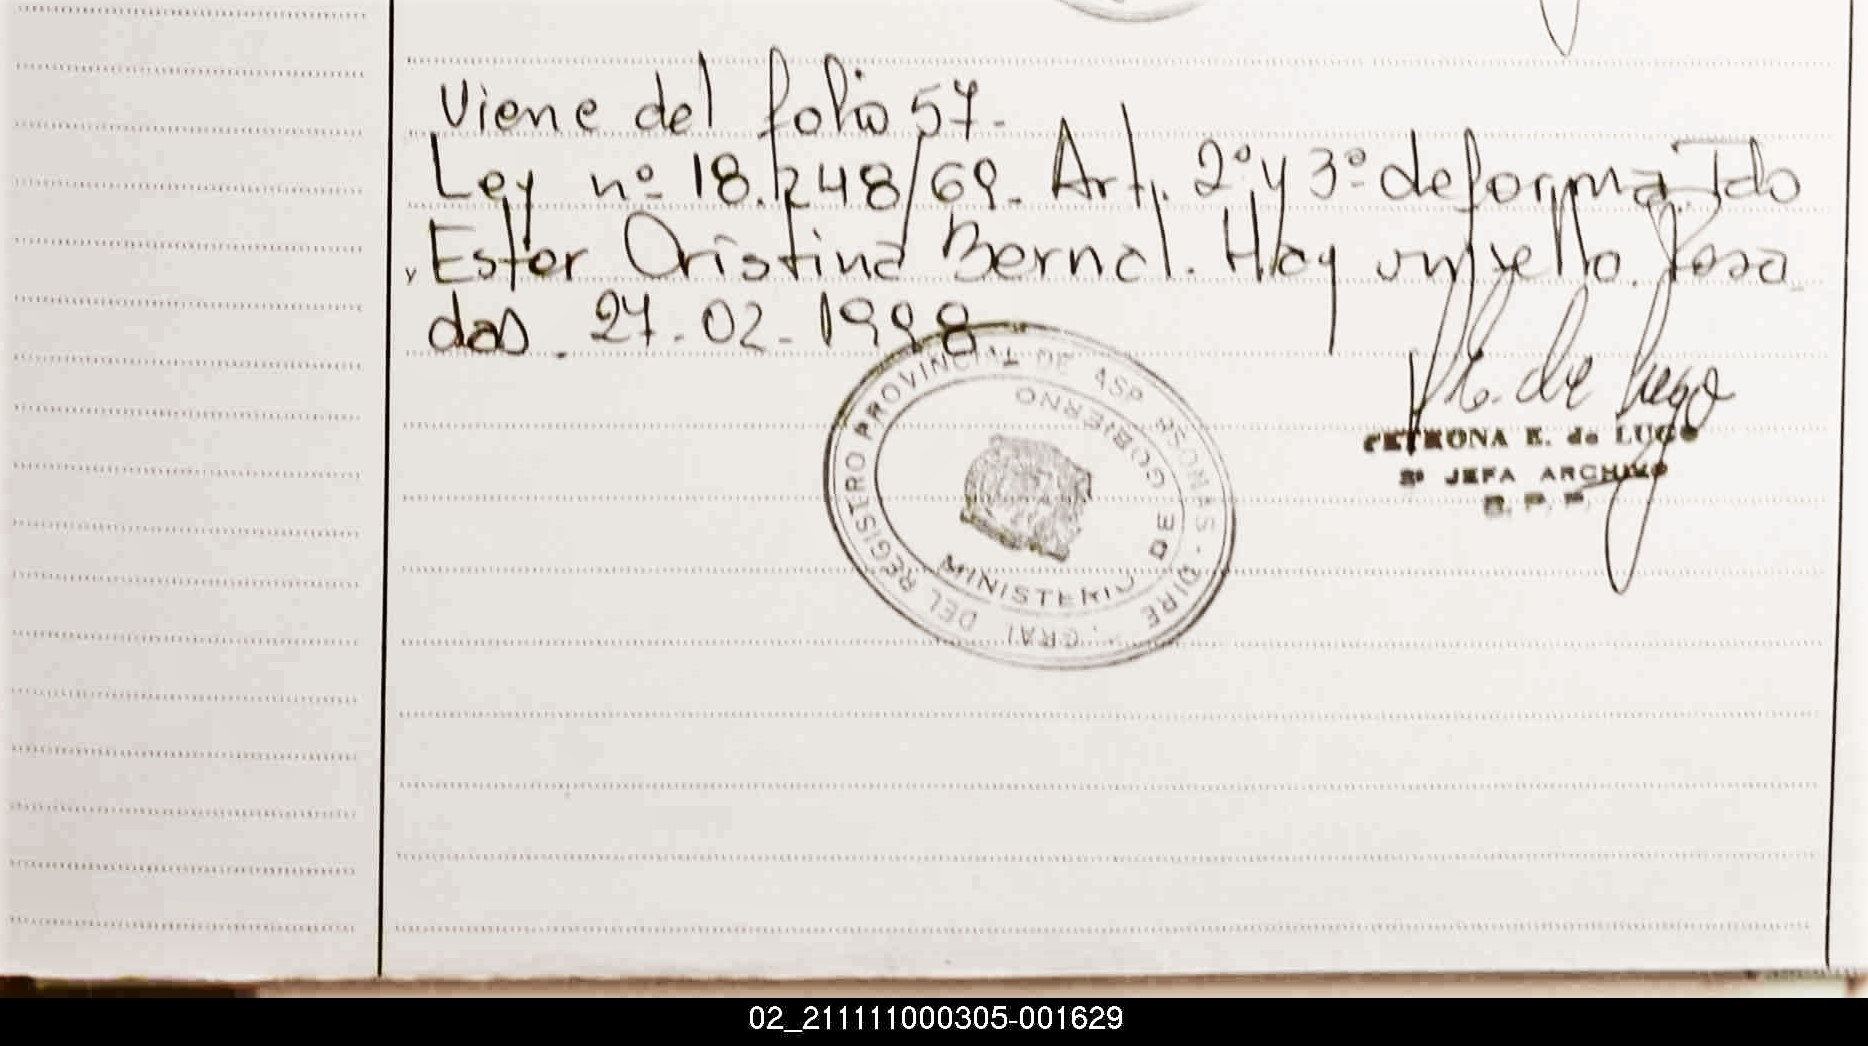 Viene del folio 57.
Ley nº 18.248/69. Art. 2º y 3º de forma. Fdo
Ester Cristina Bernal. Hay un sello. Posa
das. 27-02-1998
REGISTRO PROVINCIAL DE
MINISTERIO DE GOBIERNO
PETRONA E. de LUGO
JEFA ARCHIVO
R. P. P.
02_211111000305-001629